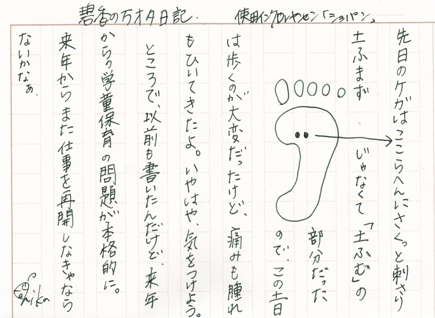 碧香の万オタ日記.
使用インク:カルヤセン「ショパン」
先日のケガはここらへんにさくっと刺さり
土ふまず…じゃなくて「土ふむ」の
部分だった
ので、この土日
は歩くのが大変だったけど、痛みも腫れ
もひいてきたよ。いやはや、気をつけよう。
ところで、以前も書いたんだけど、来年
からの学童保育の問題が本格的に。
来年からまた仕事を再開しなきゃなら
ないかなぁ。